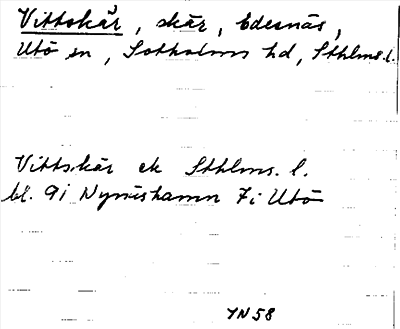 Vittskär, skär, Edesnäs,
Utö sn, Sotholms hd, Sthlms. l.
Vittskär ek Sthlms. l.
bl. 9i Nynäshamn 7i Utö
YN58